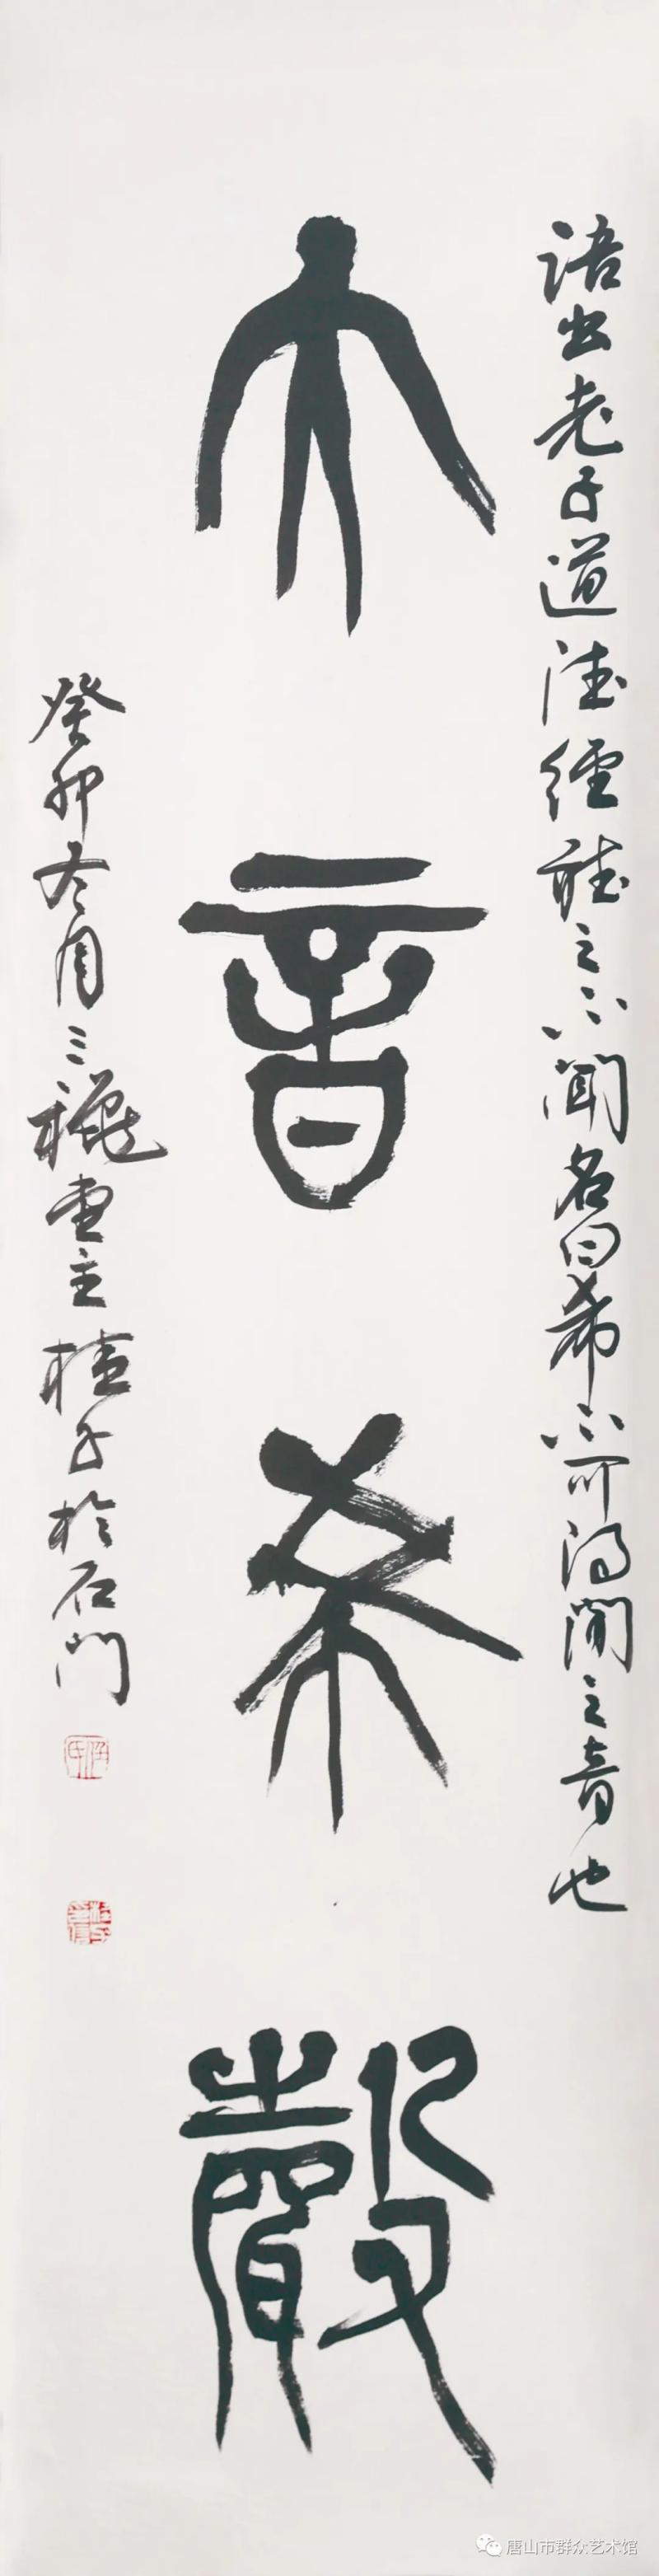 大音希聲
語出老子道德經聽之不聞名曰希不可得聞之音也
癸卯冬月三穐堂主桂子於石門
唐山市群众艺术馆